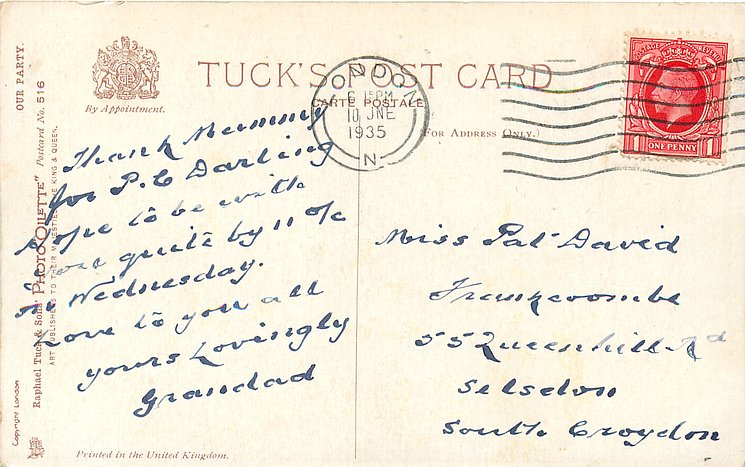 TUCK'S POST CARD
CARTE POSTALE
By Appointment.
(FOR ADDRESS ONLY.)
LONDON
6 15PM
10 JNE
1935
N
POSTAGE REVENUE
1 ONE PENNY 1
OUR PARTY.
Raphael Tuck & Sons' "PHOTO OILETTE" Postcard No. 516
ART PUBLISHERS TO THEIR MAJESTIES THE KING & QUEEN.
Copyright London
Thank Mummy
for P.C Darling
Hope to be with
you quite by 11 o/c
Wednesday.
Love to you all
yours Lovingly
Grandad
Miss Pat David
Frankcoombe
55 Queenhill Rd
Selsdon
South Croydon
Printed in the United Kingdom.